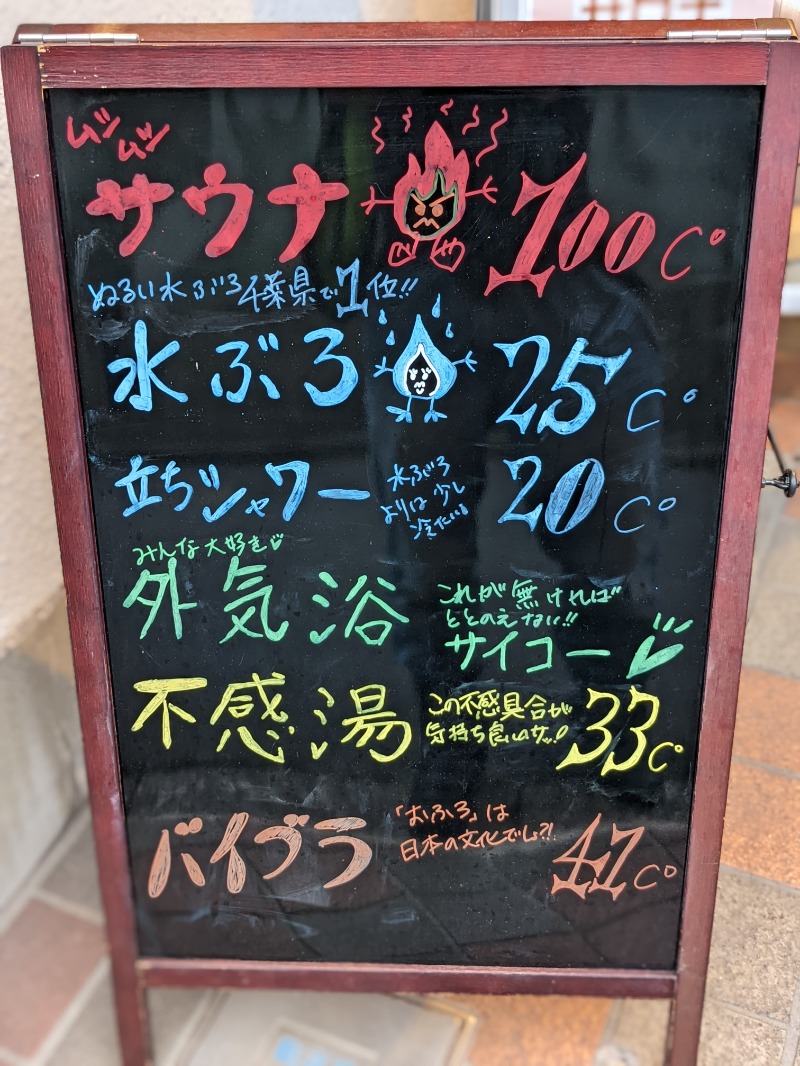 ムシムシ
サウナ 100C°
ぬるい水ぶろ千葉県で1位!!
水ぶろ 25C°
立ちシャワー 20C°
水ぶろ
よりは少し
冷たい
みんな大好き
外気浴
これが無ければ
ととのえない!!
サイコー
不感湯
この不感具合が
気持ち良いサッ!
33C°
バイブラ
「おふろ」は
日本の文化でしょ?!
41C°